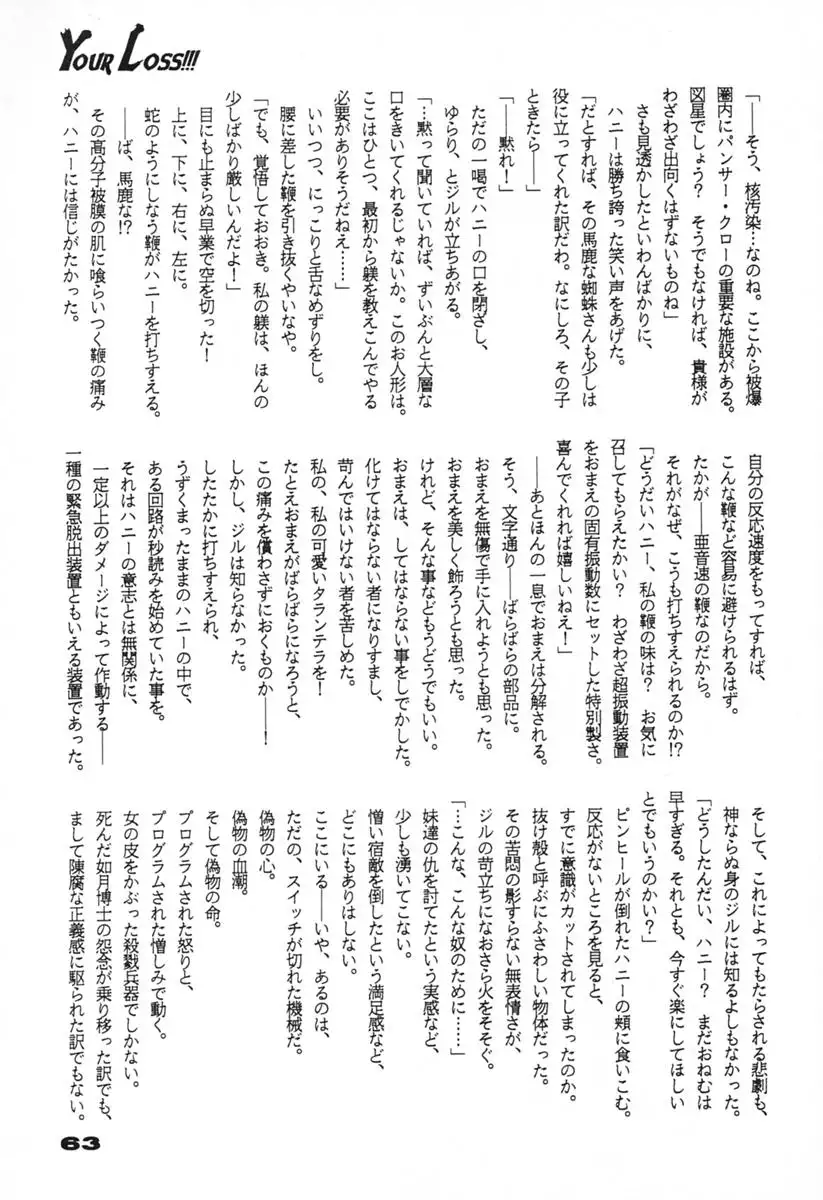 YOUR LOSS!!!
「――そう、核汚染…なのね。ここから被爆
圏内にパンサー・クローの重要な施設がある。
図星でしょう？　そうでもなければ、貴様が
わざわざ出向くはずないものね」
さも見透かしたといわんばかりに、
ハニーは勝ち誇った笑い声をあげた。
「だとすれば、その馬鹿な蜘蛛さんも少しは
役に立ってくれた訳だわ。なにしろ、その子
ときたら――」
「――黙れ！」
ただの一喝でハニーの口を閉ざし、
ゆらり、とジルが立ちあがる。
「…黙って聞いていれば、ずいぶんと大層な
口をきいてくれるじゃないか。このお人形は。
ここはひとつ、最初から躾を教えこんでやる
必要がありそうだねえ……」
いいつつ、にっこりと舌なめずりをし。
腰に差した鞭を引き抜くやいなや。
「でも、覚悟しておおき。私の躾は、ほんの
少しばかり厳しいんだよ！」
目にも止まらぬ早業で空を切った！
上に、下に、右に、左に。
蛇のようにしなう鞭がハニーを打ちすえる。
――ば、馬鹿な!?
その高分子被膜の肌に喰らいつく鞭の痛み
が、ハニーには信じがたかった。
自分の反応速度をもってすれば、
こんな鞭など容易に避けられるはず。
たかが――亜音速の鞭なのだから。
それがなぜ、こうも打ちすえられるのか!?
「どうだいハニー、私の鞭の味は？　お気に
召してもらえたかい？　わざわざ超振動装置
をおまえの固有振動数にセットした特別製さ。
喜んでくれれば嬉しいねえ！」
――あとほんの一息でおまえは分解される。
そう、文字通り――ばらばらの部品に。
おまえを美しく飾ろうとも思った。
おまえを無傷で手に入れようとも思った。
けれど、そんな事などもうどうでもいい。
おまえは、してはならない事をしでかした。
化けてはならない者になりすまし、
苛んではいけない者を苦しめた。
私の、私の可愛いタランテラを！
たとえおまえがばらばらになろうと、
この痛みを償わさずにおくものか――！
しかし、ジルは知らなかった。
したたかに打ちすえられ、
うずくまったままのハニーの中で、
ある回路が秒読みを始めていた事を。
それはハニーの意志とは無関係に、
一定以上のダメージによって作動する――
一種の緊急脱出装置ともいえる装置であった。
そして、これによってもたらされる悲劇も、
神ならぬ身のジルには知るよしもなかった。
「どうしたんだい、ハニー？　まだおねむは
早すぎる。それとも、今すぐ楽にしてほしい
とでもいうのかい？」
ピンヒールが倒れたハニーの頬に食いこむ。
反応がないところを見ると、
すでに意識がカットされてしまったのか。
抜け殻と呼ぶにふさわしい物体だった。
その苦悶の影すらない無表情さが、
ジルの苛立ちになおさら火をそそぐ。
「…こんな、こんな奴のために……」
妹達の仇を討てたという実感など、
少しも湧いてこない。
憎い宿敵を倒したという満足感など、
どこにもありはしない。
ここにいる――いや、あるのは、
ただの、スイッチが切れた機械だ。
偽物の心。
偽物の血潮。
そして偽物の命。
プログラムされた怒りと、
プログラムされた憎しみで動く。
女の皮をかぶった殺戮兵器でしかない。
死んだ如月博士の怨念が乗り移った訳でも、
まして陳腐な正義感に駆られた訳でもない。
63